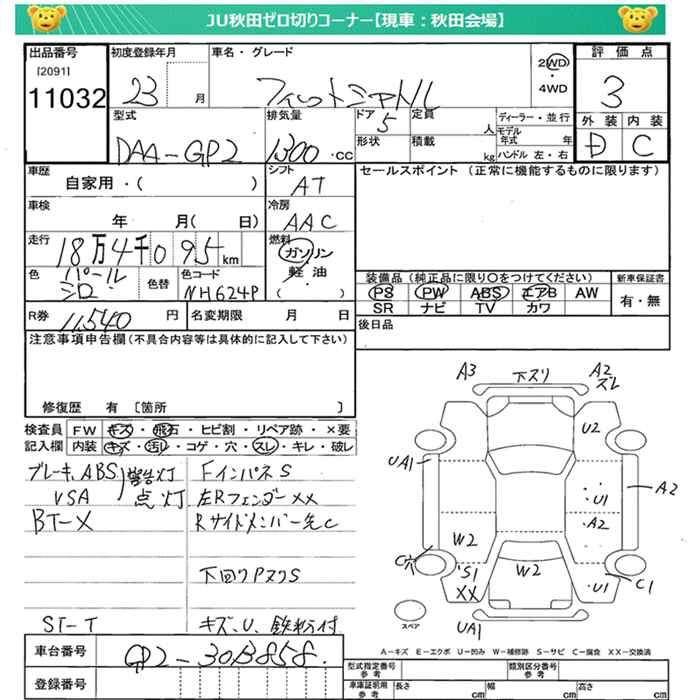 JU秋田ゼロ切りコーナー【現車：秋田会場】
出品番号
[2091]
11032
初度登録年月
23 月
車名・グレード
フィットシャトル
2WD
・
4WD
評価点
3
外装 内装
D C
型式
DAA-GP2
排気量
1300 .cc
ドア
5
定員
人
形状
積載
kg
ディーラー・並行
モデル年式 年
ハンドル 左・右
車歴
自家用・( )
シフト
AT
セールスポイント (正常に機能するものに限ります)
車検
年 月( 日)
冷房
AAC
走行
18万4千095 km
燃料
ガソリン
軽油
( )
色
パール
シロ
色替
色コード
NH624P
装備品 (純正品に限り○をつけてください)
PS PW ABS エアB AW
SR ナビ TV カワ
新車保証書
有・無
R券
11,540 円
名変期限 月 日
後日品
注意事項申告欄(不具合内容等は具体的に記入して下さい)
修復歴 有 〔箇所 〕
検査員
記入欄
FW キズ・飛石・ヒビ割・リペア跡・×要
内装 キズ・汚レ・コゲ・穴・スレ・キレ・破レ
ブレーキ、ABS
VSA
警告灯
点灯
BT-X
ST-T
FインパネS
左Rフェンダー××
Rサイドメンバー先C
下回りPスクS
キズ、U、鉄粉付
A3
下スリ
A2
スレ
U2
UA1
A2
U1
A2
W2
C穴
S1
XX
W2
U1
C1
UA1
スペア
A-キズ E-エクボ U-凹み W-補修跡 S-サビ C-腐食 XX-交換済
車台番号
GP2-3013858.
登録番号
型式指定番号
参考
類別区分番号
参考
車庫証明用
参考
長さ cm
幅 cm
高さ cm